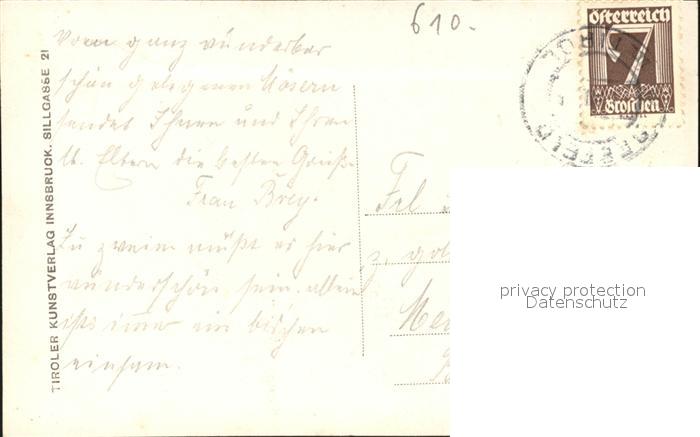 610.
Österreich
7
Groschen
TIROL
SEEFELD
Vom ganz wunderbar
schön gelegenen Mösern
sendet Ihnen und Ihren
lb. Eltern die besten Grüße
Frau Brey.
Zu zweien müßt es hier
wunderschön sein. allein
ists immer ein bischen
einsam.
TIROLER KUNSTVERLAG INNSBRUCK, SILLGASSE 21
Frl
z. gol
privacy protection
Datenschutz